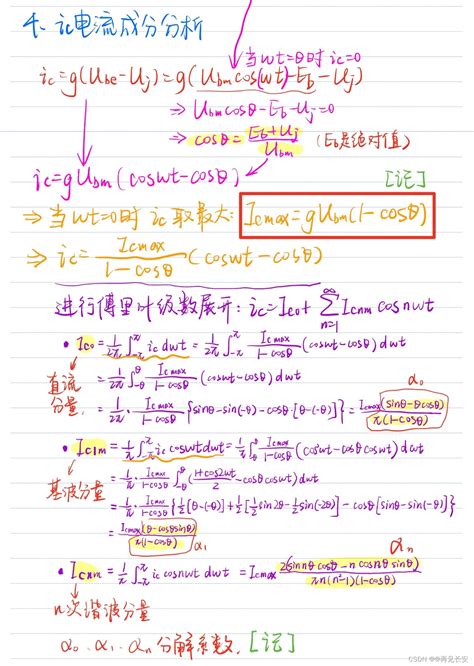 4、ic电流成分分析
当wt=θ时 ic=0
ic=g(Ube-Uj)=g(Ubmcos(wt)-Eb-Uj)
⇒ Ubmcosθ-Eb-Uj=0
⇒ cosθ=(Eb+Uj)/Ubm (Eb是绝对值)
ic=gUbm(coswt-cosθ) [记]
⇒ 当wt=0时 ic取最大: Icmax=gUbm(1-cosθ)
⇒ ic=Icmax/(1-cosθ) (coswt-cosθ)
进行傅里叶级数展开: ic=Ic0+∑_{n=1}^{∞} Icnm cosnwt
• Ic0=1/2π ∫_{-π}^{π} ic dwt=1/2π ∫_{-π}^{π} Icmax/(1-cosθ) (coswt-cosθ)dwt
直流分量 =1/2π ∫_{-θ}^{θ} Icmax/(1-cosθ) (coswt-cosθ)dwt
α0
=1/2π · Icmax/(1-cosθ) {sinθ-sin(-θ)-cosθ·[θ-(-θ)]}=Icmax(sinθ-θcosθ)/π(1-cosθ)
• Ic1m=1/π ∫_{-π}^{π} ic coswt dwt=1/π ∫_{-θ}^{θ} Icmax/(1-cosθ) (coswt-cosθ)coswt dwt
基波分量 =1/π · Icmax/(1-cosθ) ∫_{-θ}^{θ} ((1+cos2wt)/2-cosθcoswt)dwt
=1/π · Icmax/(1-cosθ) {1/2[θ-(-θ)]+1/2[1/2sin2θ-1/2sin(-2θ)]-cosθ[sinθ-sin(-θ)]}
=Icmax(θ-cosθsinθ)/π(1-cosθ) α1
αn
• Icnm=1/π ∫_{-π}^{π} ic cosnwt dwt=Icmax 2(sinnθcosθ-ncosnθsinθ)/πn(n²-1)(1-cosθ)
n次谐波分量
α0、α1、αn分解系数, [记]
CSDN @@再见长安